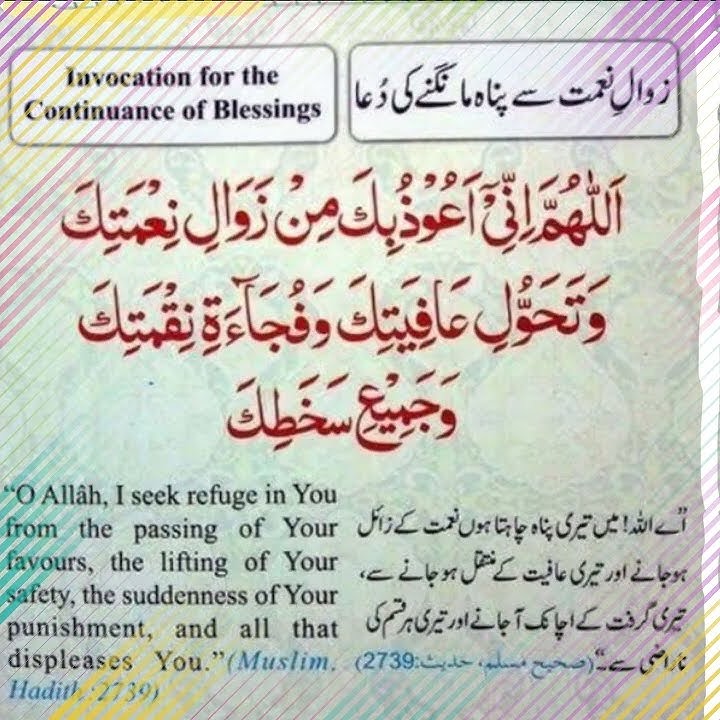 Invocation for the
Continuance of Blessings
زوالِ نعمت سے پناہ مانگنے کی دُعا
اَللّٰهُمَّ اِنِّيْٓ اَعُوْذُبِكَ مِنْ زَوَالِ نِعْمَتِكَ
وَتَحَوُّلِ عَافِيَتِكَ وَفُجَآءَةِ نِقْمَتِكَ
وَجَمِيْعِ سَخَطِكَ
“O Allâh, I seek refuge in You
from the passing of Your
favours, the lifting of Your
safety, the suddenness of Your
punishment, and all that
displeases You.”(Muslim,
Hadith:2739)
”اے اللہ! میں تیری پناہ چاہتا ہوں نعمت کے زائل
ہو جانے اور تیری عافیت کے منتقل ہو جانے سے،
تیری گرفت کے اچانک آ جانے اور تیری ہر قسم کی
ناراضی سے۔“(صحیح مسلم، حدیث:2739)